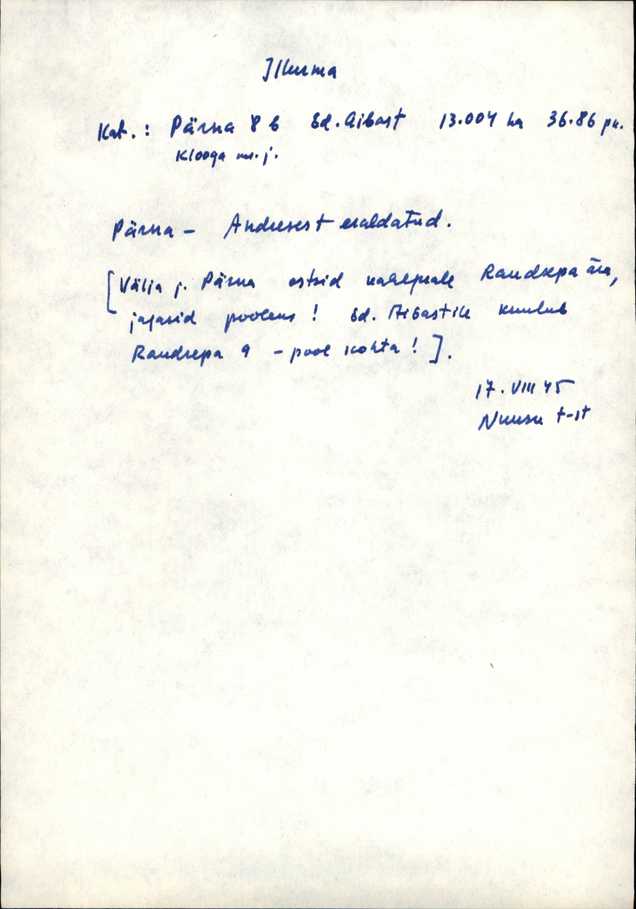 Ilkurma
Kat.: Pärna 8 b Ed. Aibast 13.004 ha 36.86 pn.
Klooga m. j.
Pärna – Andresest eraldatud.
[Välja j. Pärna ostsid Raudsepa ära,
jagasid pooleks! Ed. Aibastile kuulub
Raudsepa 9 – pool kohta!].
17. VIII 45
t-st